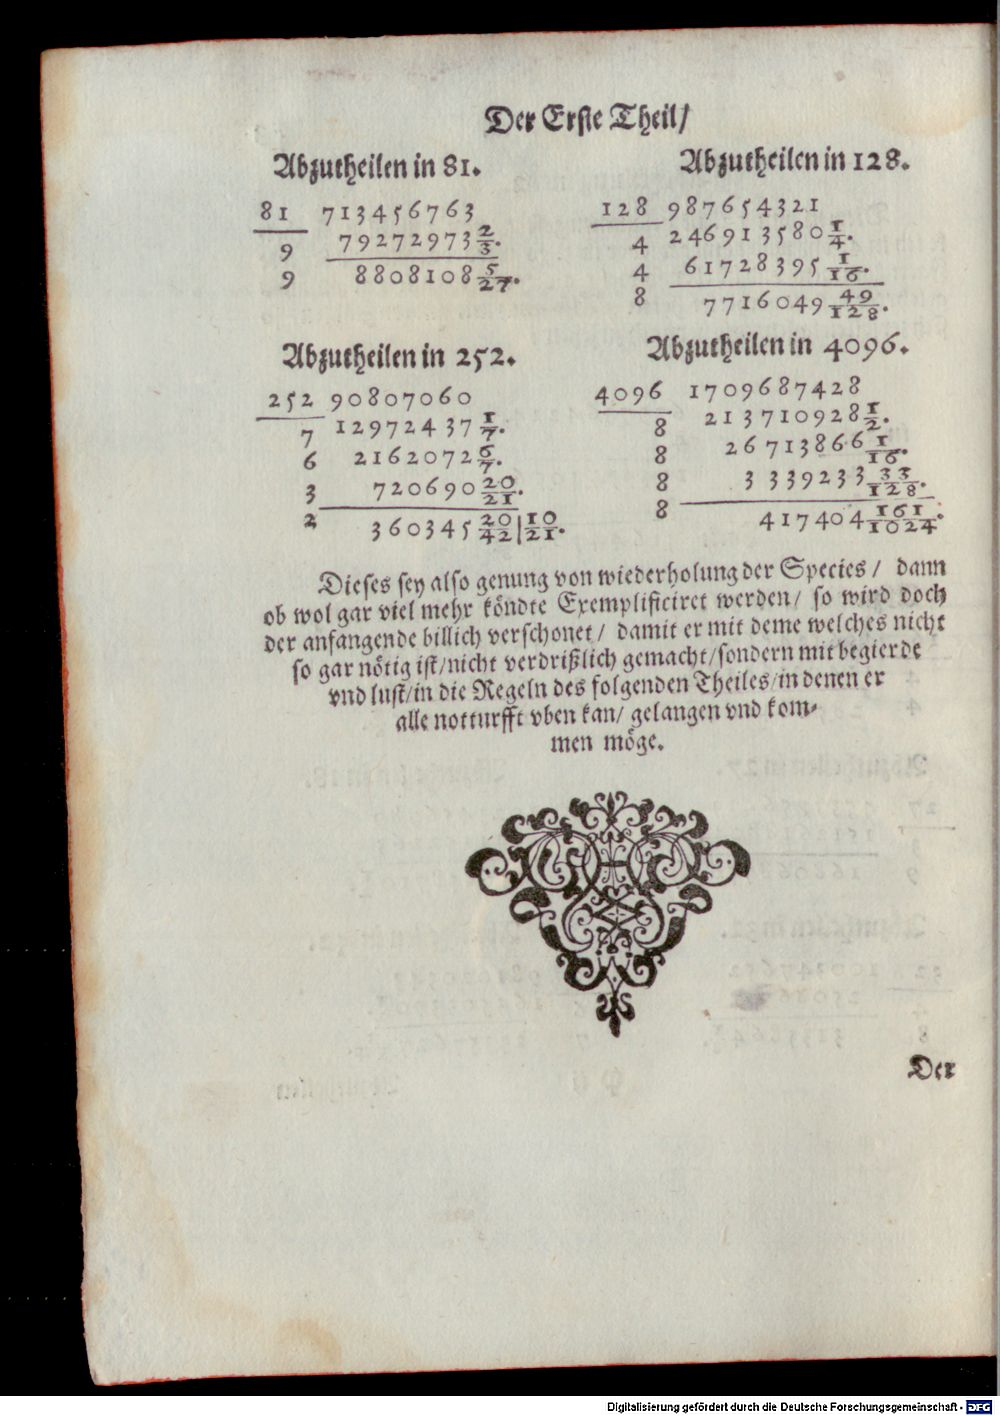 Der Erste Theil/
Abzutheilen in 81.
81 713456763
9 79272973 2/3.
9 8808108 5/27.
Abzutheilen in 128.
128 987654321
4 246913580 1/4.
4 61728395 1/16.
8 7716049 49/128.
Abzutheilen in 252.
252 90807060
7 12972437 1/7.
6 2162072 6/7.
3 720690 20/21.
2 360345 20/42|10/21.
Abzutheilen in 4096.
4096 1709687428
8 213710928 1/2.
8 26713866 1/16.
8 3339233 33/128.
8 417404 161/1024.
Dieses sey also genung von wiederholung der Species / dann
ob wol gar viel mehr köndte Exemplificiret werden/ so wird doch
der anfangende billich verschonet / damit er mit deme welches nicht
so gar nötig ist/nicht verdrißlich gemacht/sondern mit begierde
vnd lust/in die Regeln des folgenden Theiles/in denen er
alle notturfft vben kan/ gelangen vnd kom-
men möge.
Der
Digitalisierung gefördert durch die Deutsche Forschungsgemeinschaft - DFG